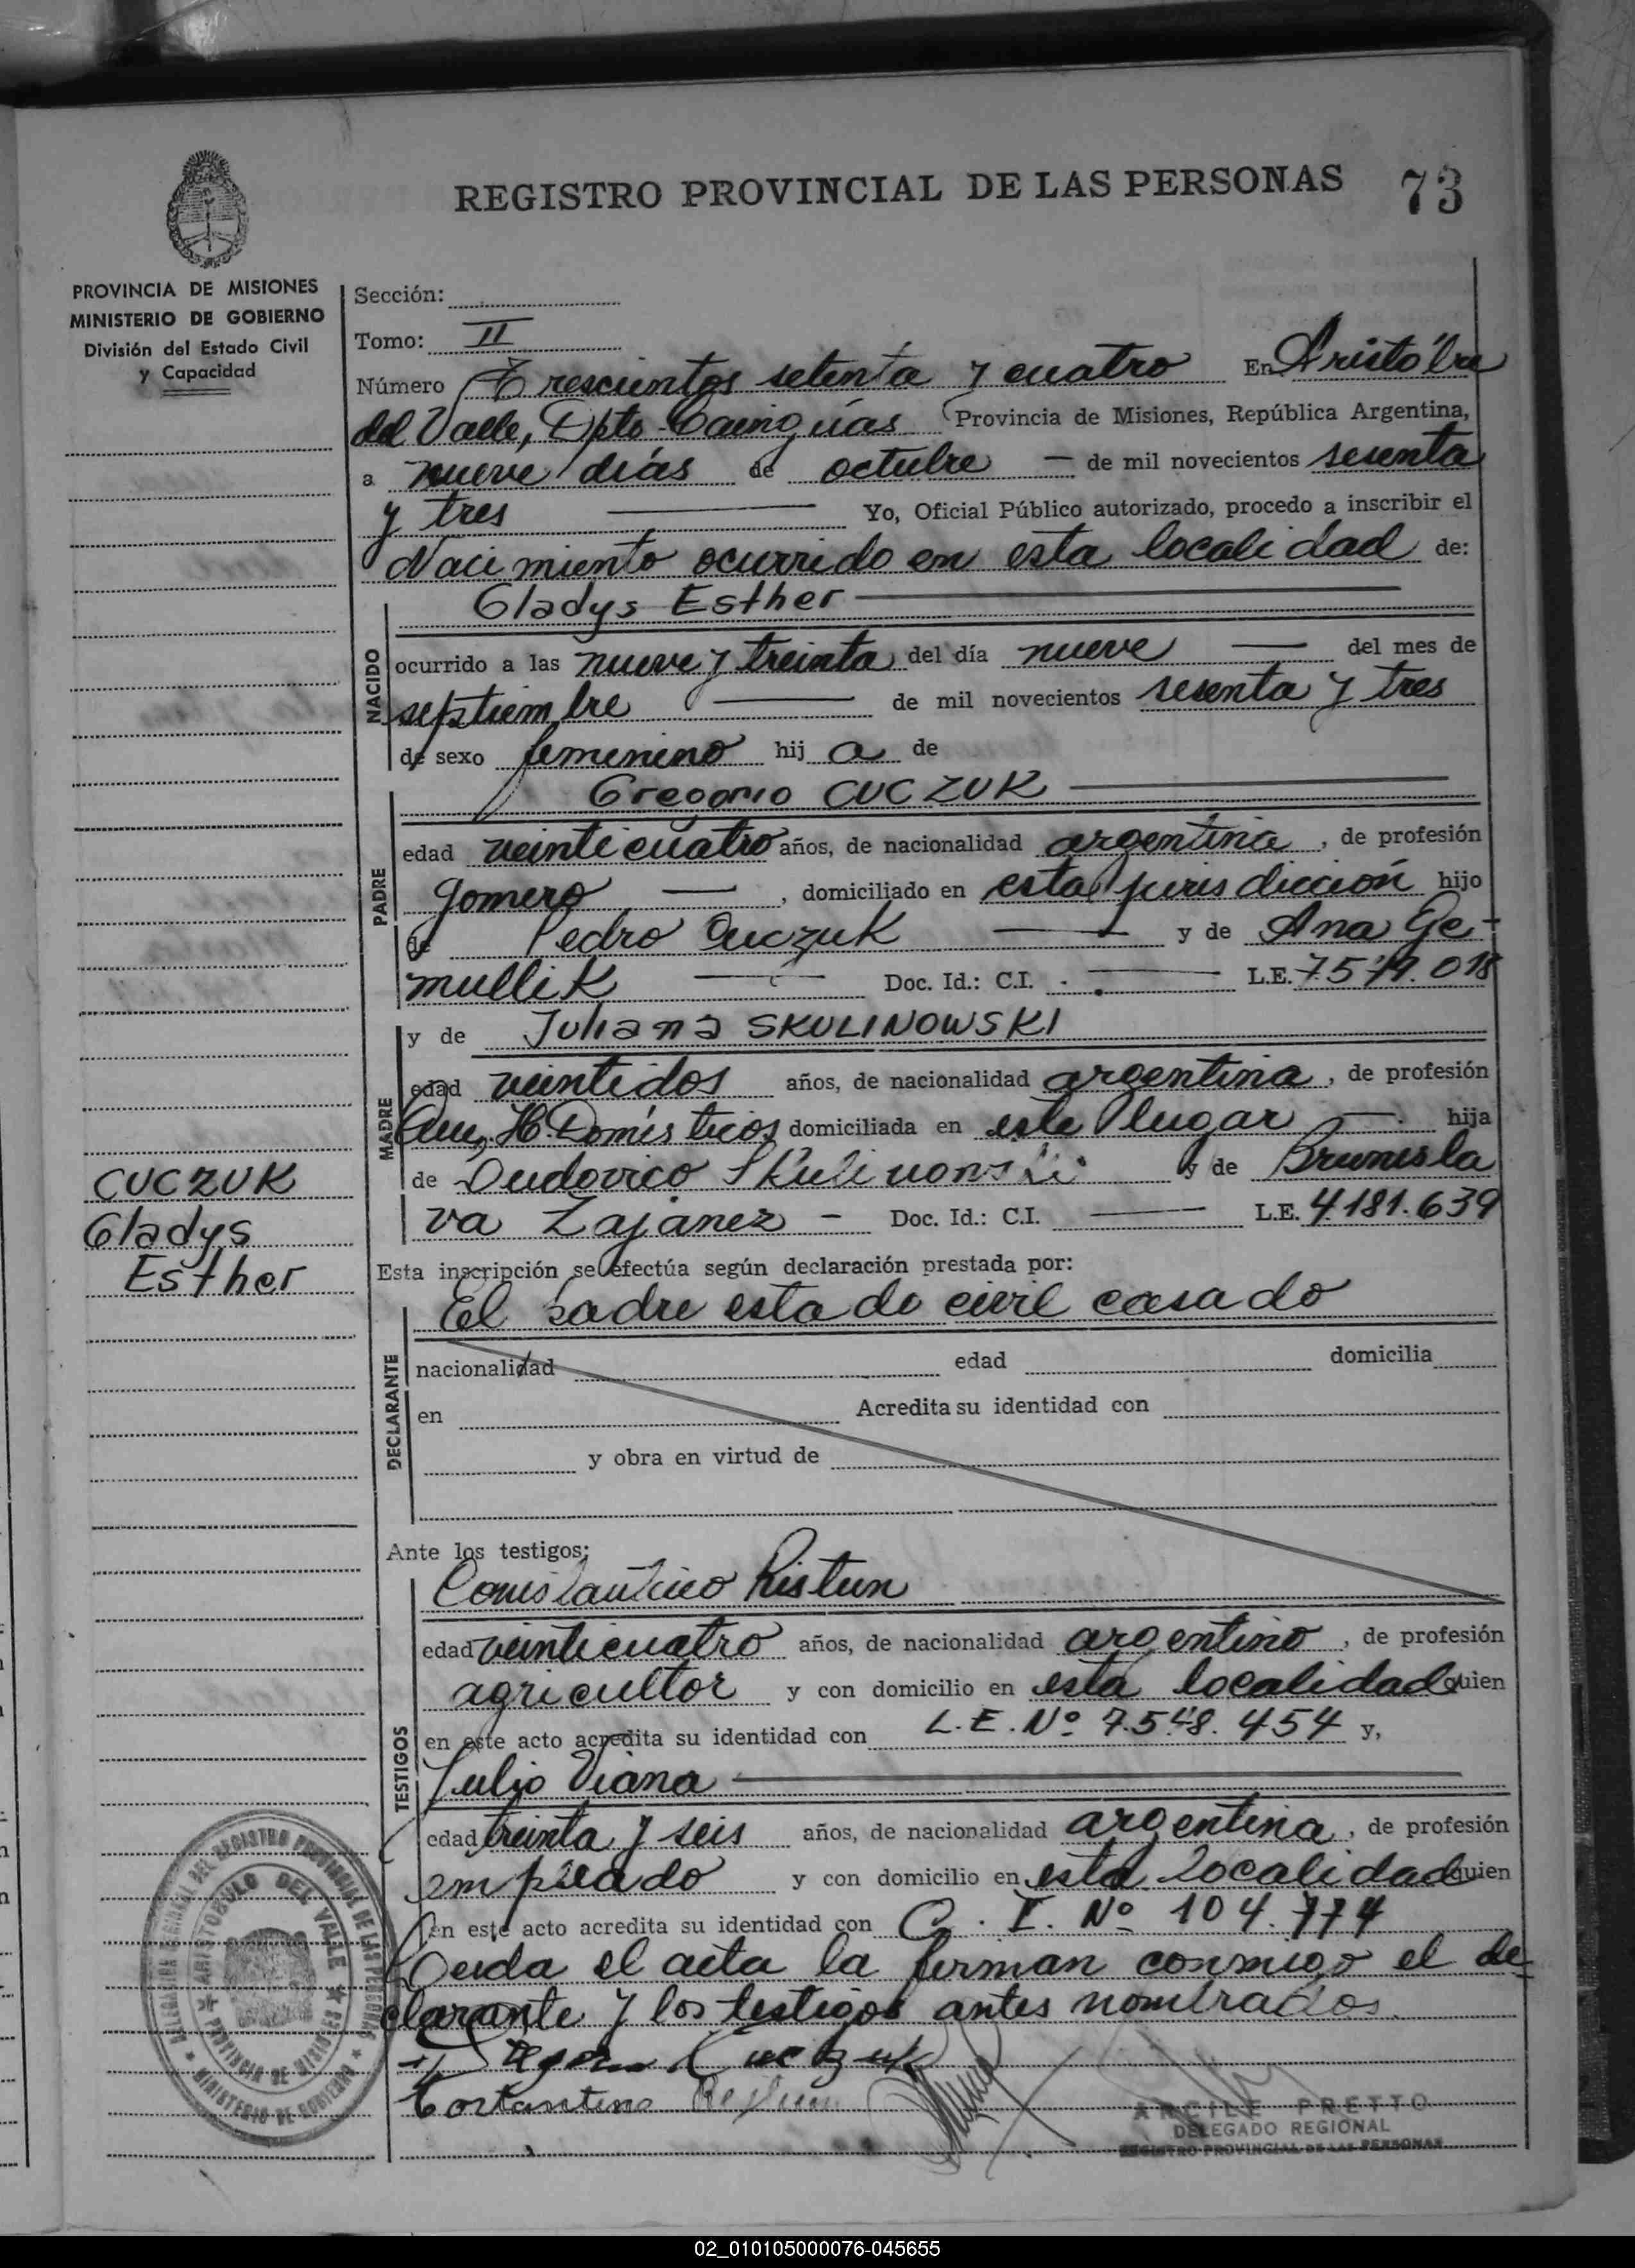 REGISTRO PROVINCIAL DE LAS PERSONAS 73
PROVINCIA DE MISIONES
MINISTERIO DE GOBIERNO
División del Estado Civil
y Capacidad
Sección:
Tomo: II
Número Trescientos setenta y cuatro En Aristóbu
del Valle, Dpto Cainguas Provincia de Misiones, República Argentina,
a nueve días de octubre — de mil novecientos sesenta
y tres — Yo, Oficial Público autorizado, procedo a inscribir el
Nacimiento ocurrido en esta localidad de:
Gladys Esther —
NACIDO
ocurrido a las nueve y treinta del día nueve — del mes de
septiembre — de mil novecientos sesenta y tres
de sexo femenino hij a de
Gregorio CUCZUK —
PADRE
edad veinticuatro años, de nacionalidad argentina, de profesión
Gomero —, domiciliado en esta jurisdicción hijo
de Pedro Cuczuk — y de Ana Ge-
mullik — Doc. Id.: C.I. — L.E. 7.579.018
y de Juliana SKULINOWSKI
MADRE
edad veintidos años, de nacionalidad argentina, de profesión
Que. H. Domésticos domiciliada en este lugar —. hija
de Ludovico Skulinowski y de Brunisla
va Zajanez — Doc. Id.: C.I. — L.E. 4.181.639
CUCZUK
Gladys
Esther
Esta inscripción se efectúa según declaración prestada por:
El padre estado civil casado
DECLARANTE
nacionalidad edad domicilia
en Acredita su identidad con
y obra en virtud de
Ante los testigos:
Constantino Ristun
TESTIGOS
edad veinticuatro años, de nacionalidad argentino, de profesión
agricultor y con domicilio en esta localidad quien
en este acto acredita su identidad con L.E. Nº 7.548.454 y,
Julio Viana —
edad treinta y seis años, de nacionalidad argentina, de profesión
empleado y con domicilio en esta localidad quien
en este acto acredita su identidad con C. I. Nº 104.774
Leida el acta la firman conmigo el de-
clarante y los testigos antes nombrados.
Cuczuk
Costantino
ARCILE PRETTO
DELEGADO REGIONAL
REGISTRO PROVINCIAL DE LAS PERSONAS
DEL REGISTRO PROVINCIAL DE LAS PERSONAS
ARISTOBULO DEL VALLE
PROVINCIA DE MISIONES
MINISTERIO DE GOBIERNO
02_010105000076-045655